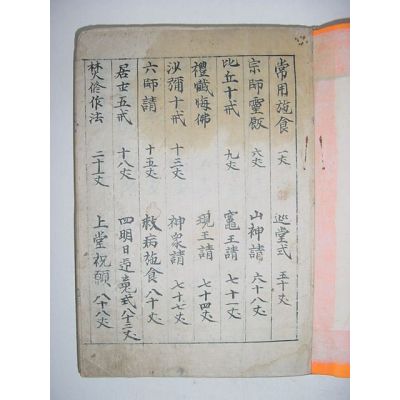 常用施食 一丈 巡堂式 五十丈
宗師靈飯 六丈 山神請 六十八丈
比丘十戒 九丈 竈王請 七十一丈
禮懺悔佛 現王請 七十四丈
沙彌十戒 十三丈 神衆請 七十七丈
六師請 十五丈 救病施食 八十丈
居士五戒 十八丈 四明日迎魂式 八十三丈
焚修作法 二十一丈 上堂祝願 八十八丈